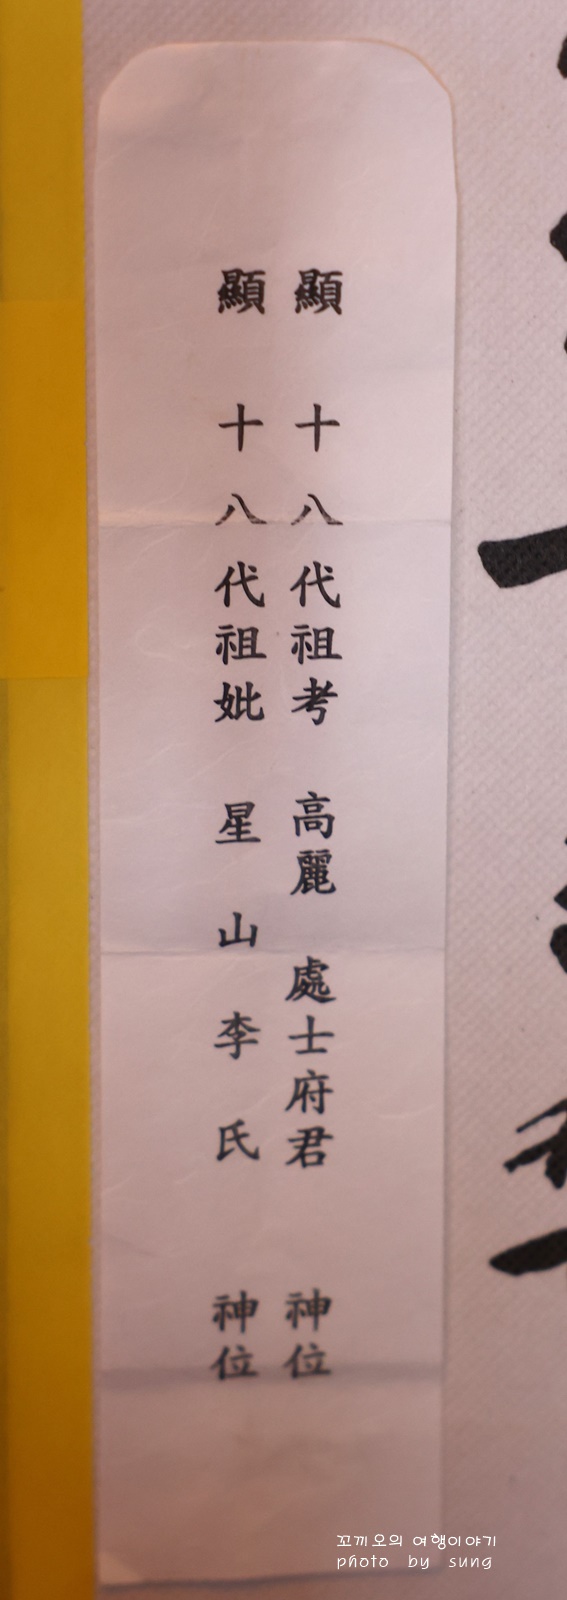 顯 十八代祖考 高麗 處士府君 神位
顯 十八代祖妣 星山李氏 神位
꼬끼오의 여행이야기
photo by sung